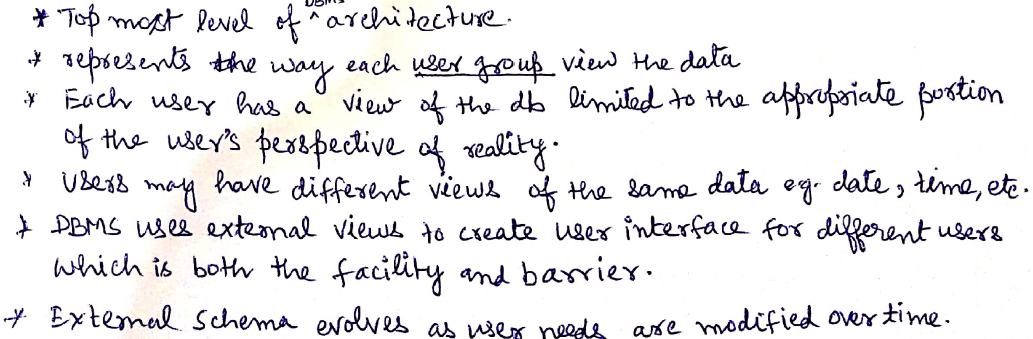 * Top most level of ^DBMS architecture.
* represents the way each user group view the data
* Each user has a view of the db limited to the appropriate portion
of the user's perspective of reality.
* Users may have different views of the same data eg. date, time, etc.
* DBMS uses external views to create user interface for different users
which is both the facility and barrier.
* External Schema evolves as user needs are modified over time.